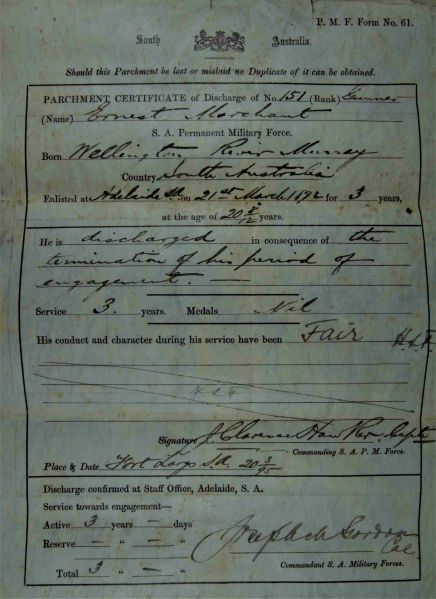 P. M. F. Form No. 61.
South Australia.
Should this Parchment be lost or mislaid no Duplicate of it can be obtained.
PARCHMENT CERTIFICATE of Discharge of No. 151 (Rank) Gunner
(Name) Ernest Marchant
S. A. Permanent Military Force.
Born Wellington River Murray
Country South Australia
Enlisted at Adelaide on 21st March 1892 for 3 years,
at the age of 20 8/12 years.
He is discharged in consequence of the
termination of his period of
engagement. —
Service 3. years. Medals Nil
His conduct and character during his service have been Fair
Signature J. Clarence Hawker. Capt
Commanding S. A. P. M. Force.
Place & Date Fort Largs S.A. 20/3/95
Discharge confirmed at Staff Office, Adelaide, S. A.
Service towards engagement—
Active 3 years — days
Reserve — " — "
Total 3 " — "
Joseph M Gordon
Col.
Commandant S. A. Military Forces.